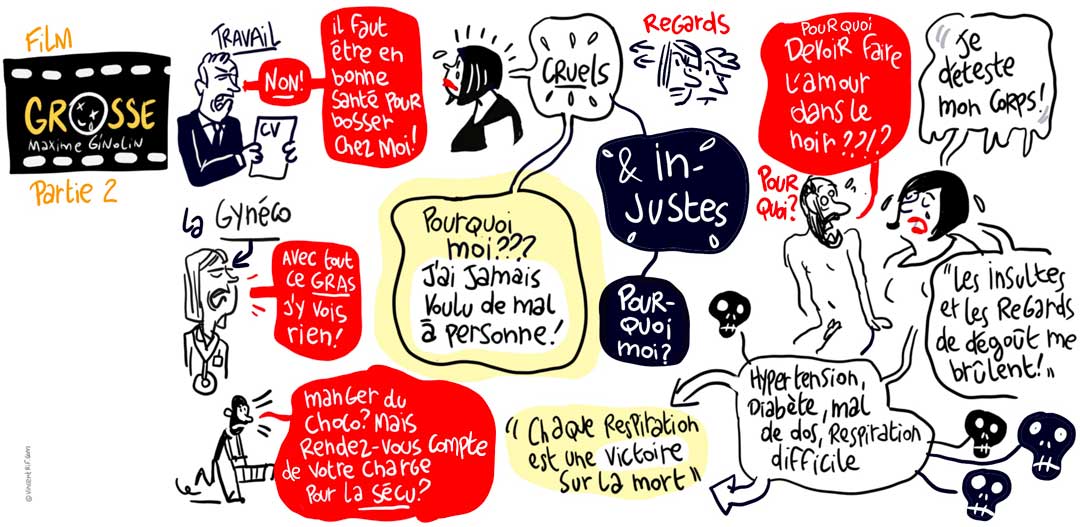 FiLM
GROSSE
MAXiME GiNOLiN
Partie 2
TRAVAIL
NON!
il faut
être en
bonne
Santé pour
bosser
Chez Moi!
CV
CRUELS
Regards
& in-
justes
Pourquoi
moi???
J'ai Jamais
Voulu de mal
à personne!
Pour-
quoi
moi?
POURQUOI
Devoir faire
L'amour
dans le
noir??!?
Pour
quoi?
"Je
déteste
mon corps!"
"Les insultes
et les Regards
de dégoût me
brûlent!"
la Gynéco
Avec tout
ce GRAS
j'y vois
rien!
manger du
choco? Mais
Rendez-vous compte
de votre charge
Pour la sécu?
"Chaque Respiration
est une victoire
Sur la mort"
Hypertension,
Diabète, mal
de dos, Respiration
difficile
© VincentRif.com